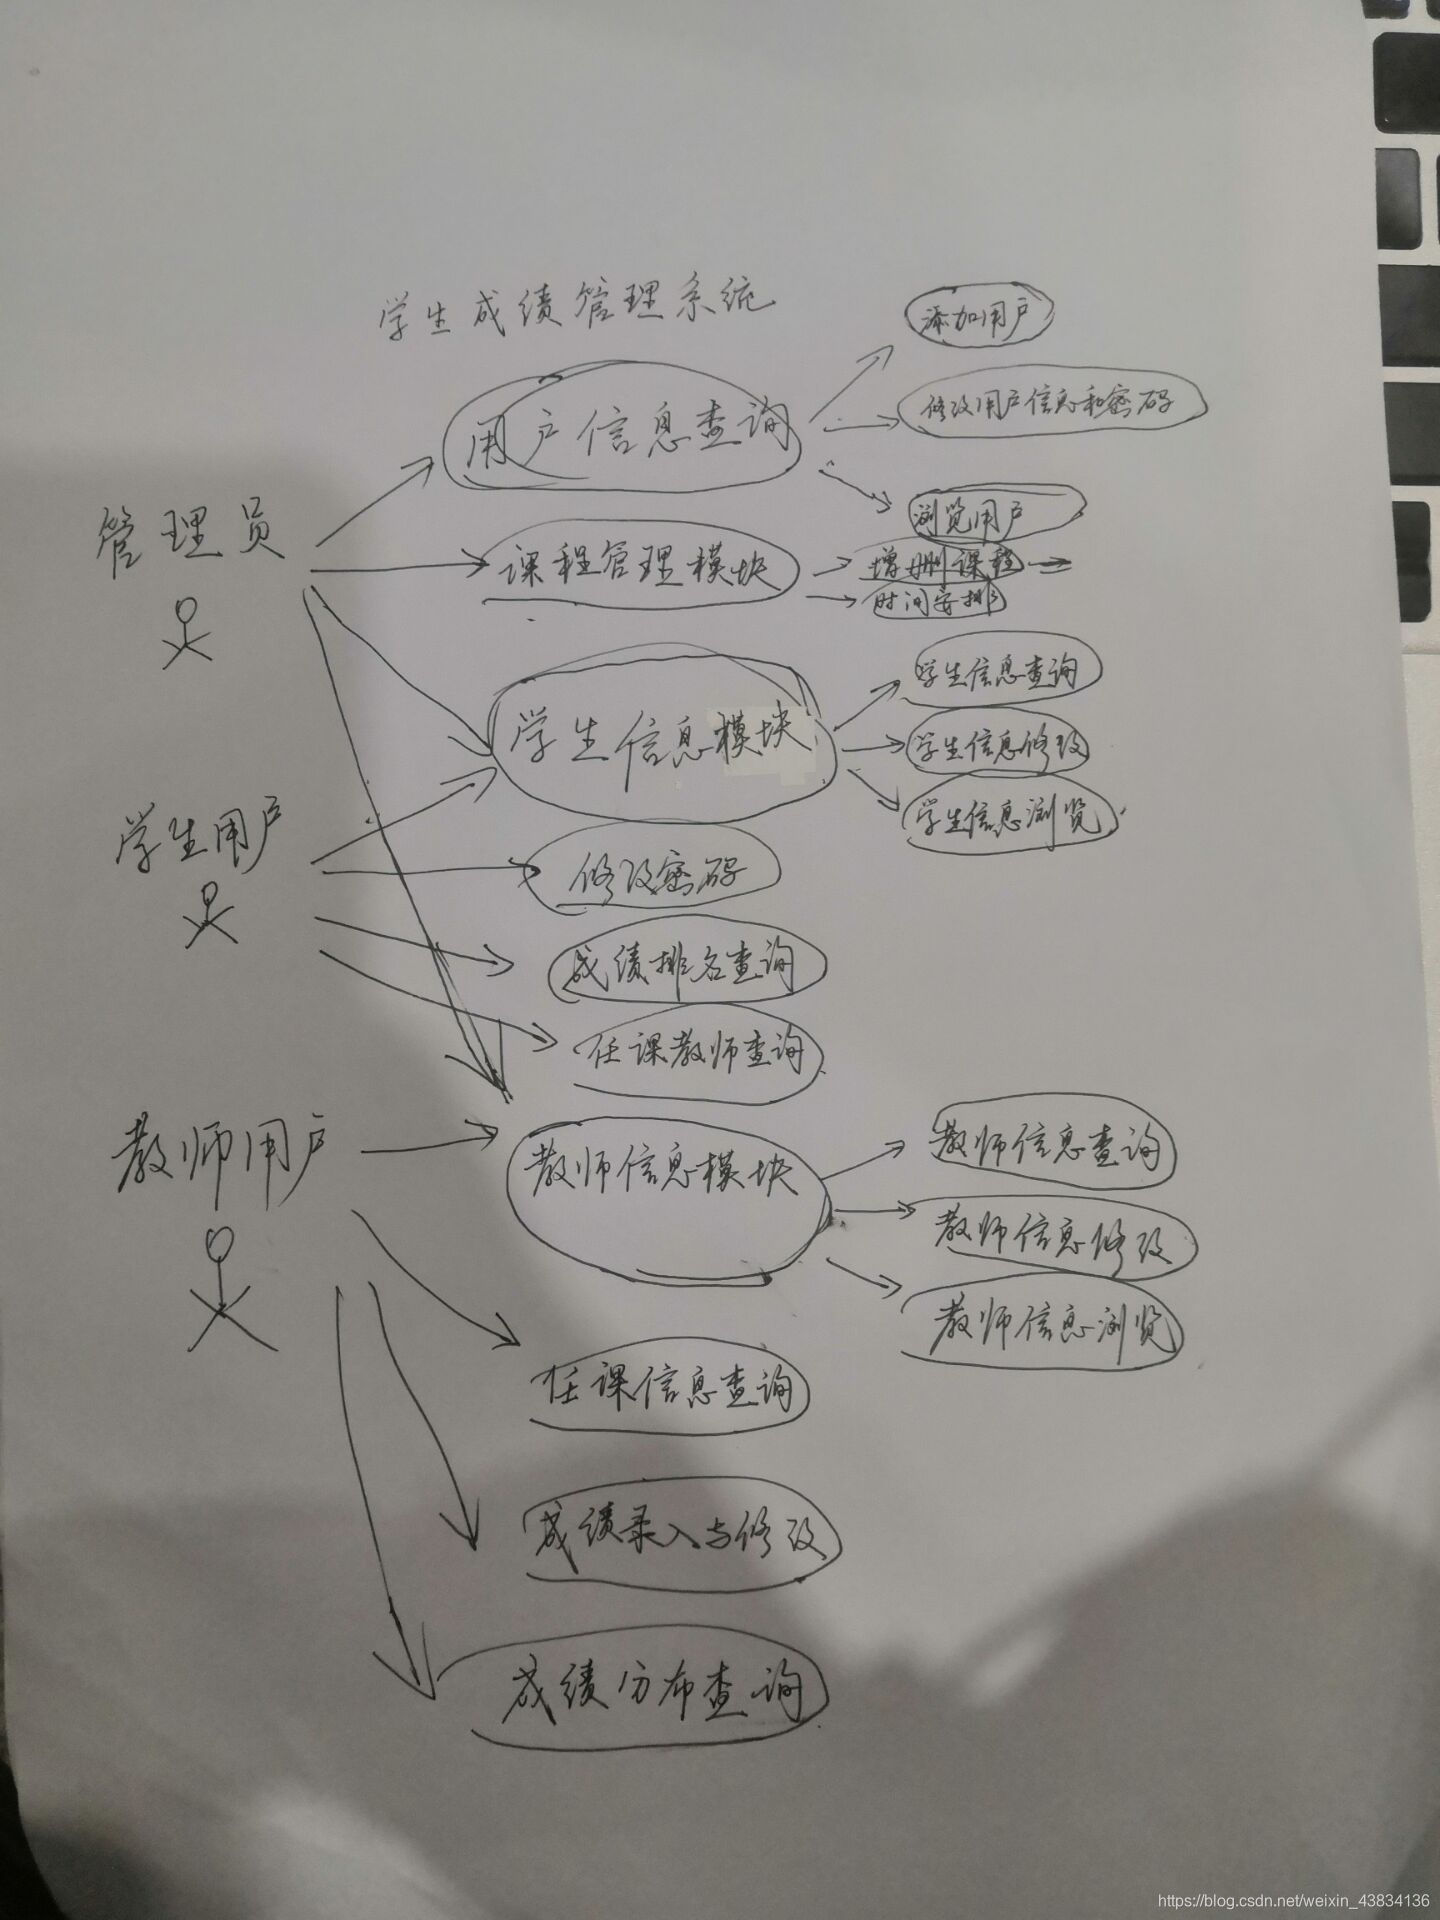 学生成绩管理系统
添加用户
修改用户信息和密码
用户信息查询
浏览用户
管理员
课程管理模块
增删课程
时间安排
学生信息查询
学生信息模块
学生信息修改
学生信息浏览
学生用户
修改密码
成绩排名查询
任课教师查询
教师用户
教师信息模块
教师信息查询
教师信息修改
教师信息浏览
任课信息查询
成绩录入与修改
成绩分布查询
https://blog.csdn.net/weixin_43834136